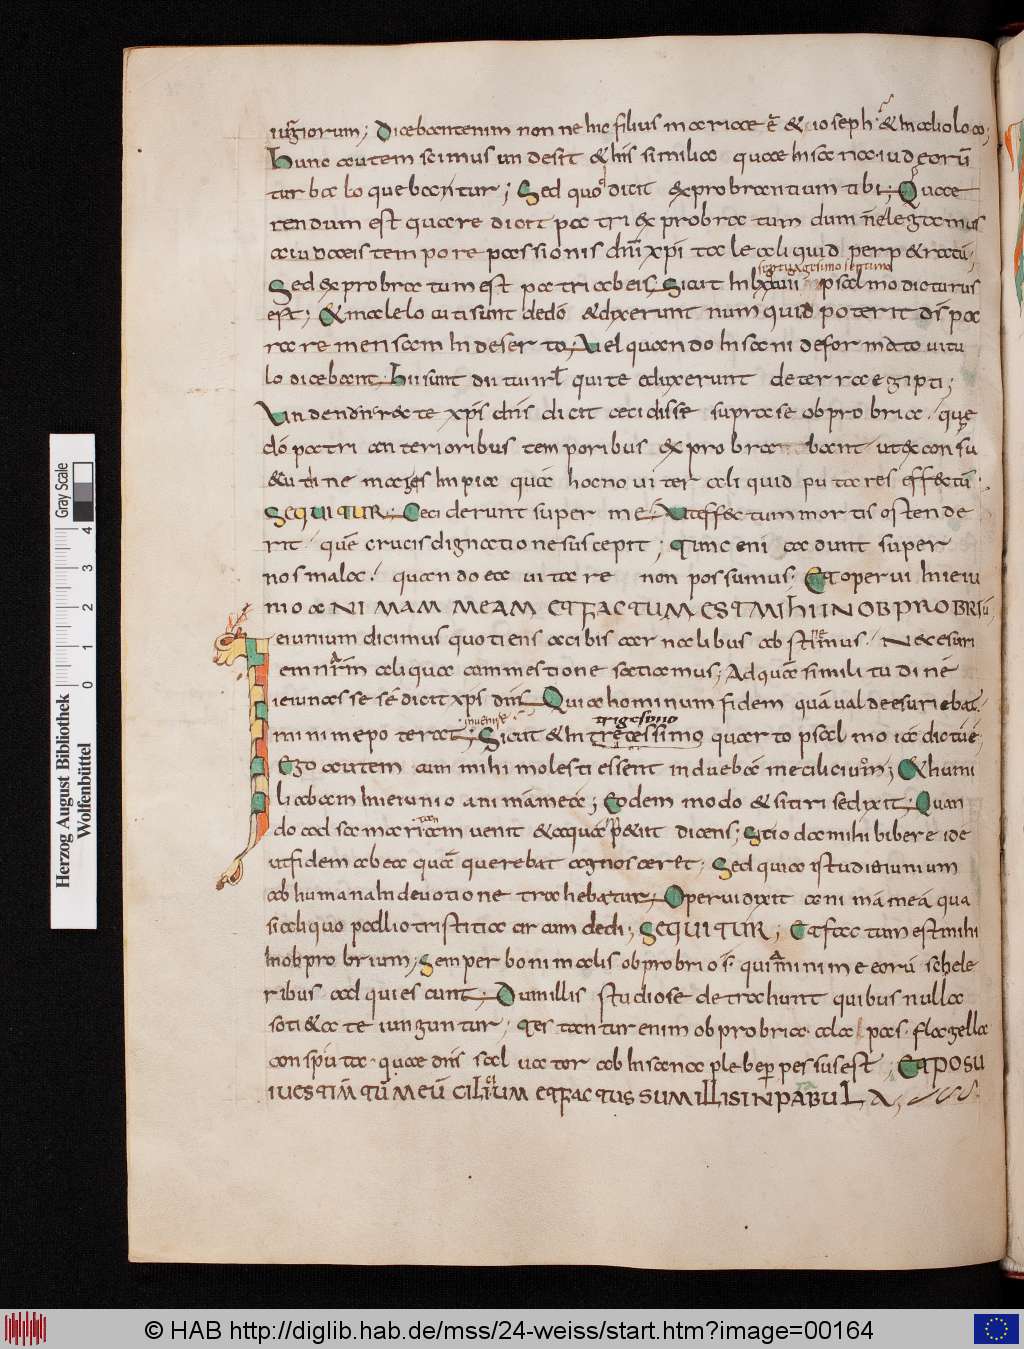 iurgiorum; Dicebant enim non ne hic filius mariae ē & ioseph · & In alio loco;
Hunc autem scimus unde sit & his similia quae In sana iudeorū
turba loquebantur; Sed quod dicit exprobrantium tibi; Quae
rendum est quare dicit patri exprobratum dum n̄ legamus
a iudaeis tempore passionis dn̄i xp̄i tale aliquid perp&ratū;
septuagesimo septimo
Sed exprobratum est patri ab eis, Sicut In lxxvii psalmo dicturus
est; & male locuti sunt de dō & dixerunt numquid poterit ds̄ pa
rare mensam In deserto; Vel quando In sani deformato uitu
lo dicebant Hii sunt dii tui irl̄ qui te eduxerunt de terra egipti;
Unde nunc recte xp̄s dn̄s dicit cecidisse supra se obpro bria · que
dō patri anterioribus temporibus exprobra bant ut ex consu
&udine magis Impia quā hoc nouiter aliquid putares effectū ·
SEQUITUR; Ceciderunt super me · Ut effectum mortis ostende
rit quē crucis dignatione suscepit; Tunc eni cadunt super
nos mala · quando ea uitare non possumus · ET operui In ieiu
nio aNIMAM MEAM ET FACTUM EST MIHI IN OBPROBRIŪ
eiunium dicimus quotiens a cibis carnalibus abstinemus · Necessari
em nr̄am aliqua commestione satiamus; Ad quā similitudinē
ieiunasse sē dicit xp̄s dn̄s Quia hominum fidem quā ualde esuriebat
· inuenire · trigesimo
minime poterat; Sicut & In trecessimo quarto psalmo iā dictū ē;
Ego autem cum mihi molesti essent induebā me cilicium; & humi
liabam In ieiunio animā meā; Eodem modo & sitiri se dixit; Quan
do ad samaritanam uenit & aquā p&iit dicens; Sitio da mihi bibere id ē
ut fidem ab ea quā querebat agnosceret; Sed quia istud ieiunium
ab humana Indeuotione trahebatur; Operui dixit animā meā qua
si aliquo pallio tristitiae circumdedi; SEQUITUR; ET factum est mihi
In obprobrium; Semper boni malis obprobrio s̄ · qui minime eorū scele
ribus adquiescunt; Dum illis studiose detrahunt quibus nulla
sotietate iunguntur; Testantur enim obprobria · alapas · flagella
consputa · quae dn̄s saluator ab Insana plebe perpessus est; ET POSU
I UESTIMTŪ MEŪ CILITIUM ET FACTUS SUM ILLIS IN PARABULA;
Herzog August Bibliothek
Wolfenbüttel
Gray Scale
0 1 2 3 4
© HAB http://diglib.hab.de/mss/24-weiss/start.htm?image=00164